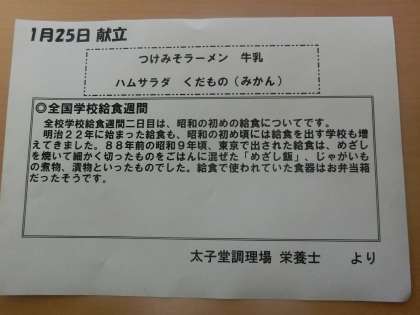 1月25日 献立
つけみそラーメン 牛乳
ハムサラダ くだもの（みかん）
◎全国学校給食週間
全校学校給食週間二日目は、昭和の初めの給食についてです。
明治２２年に始まった給食も、昭和の初め頃には給食を出す学校も増
えてきました。８８年前の昭和９年頃、東京で出された給食は、めざし
を焼いて細かく切ったものをごはんに混ぜた「めざし飯」、じゃがいも
の煮物、漬物といったものでした。給食で使われていた食器はお弁当箱
だったそうです。
太子堂調理場 栄養士 より